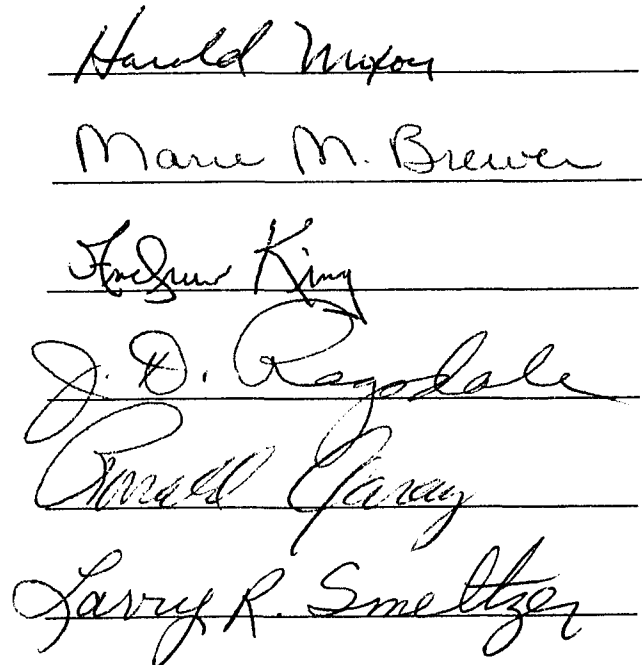 Harold Mixon
Marie M. Brewer
Andrew King
J. D. Ragsdale
Ronald Garay
Larry R. Smeltzer